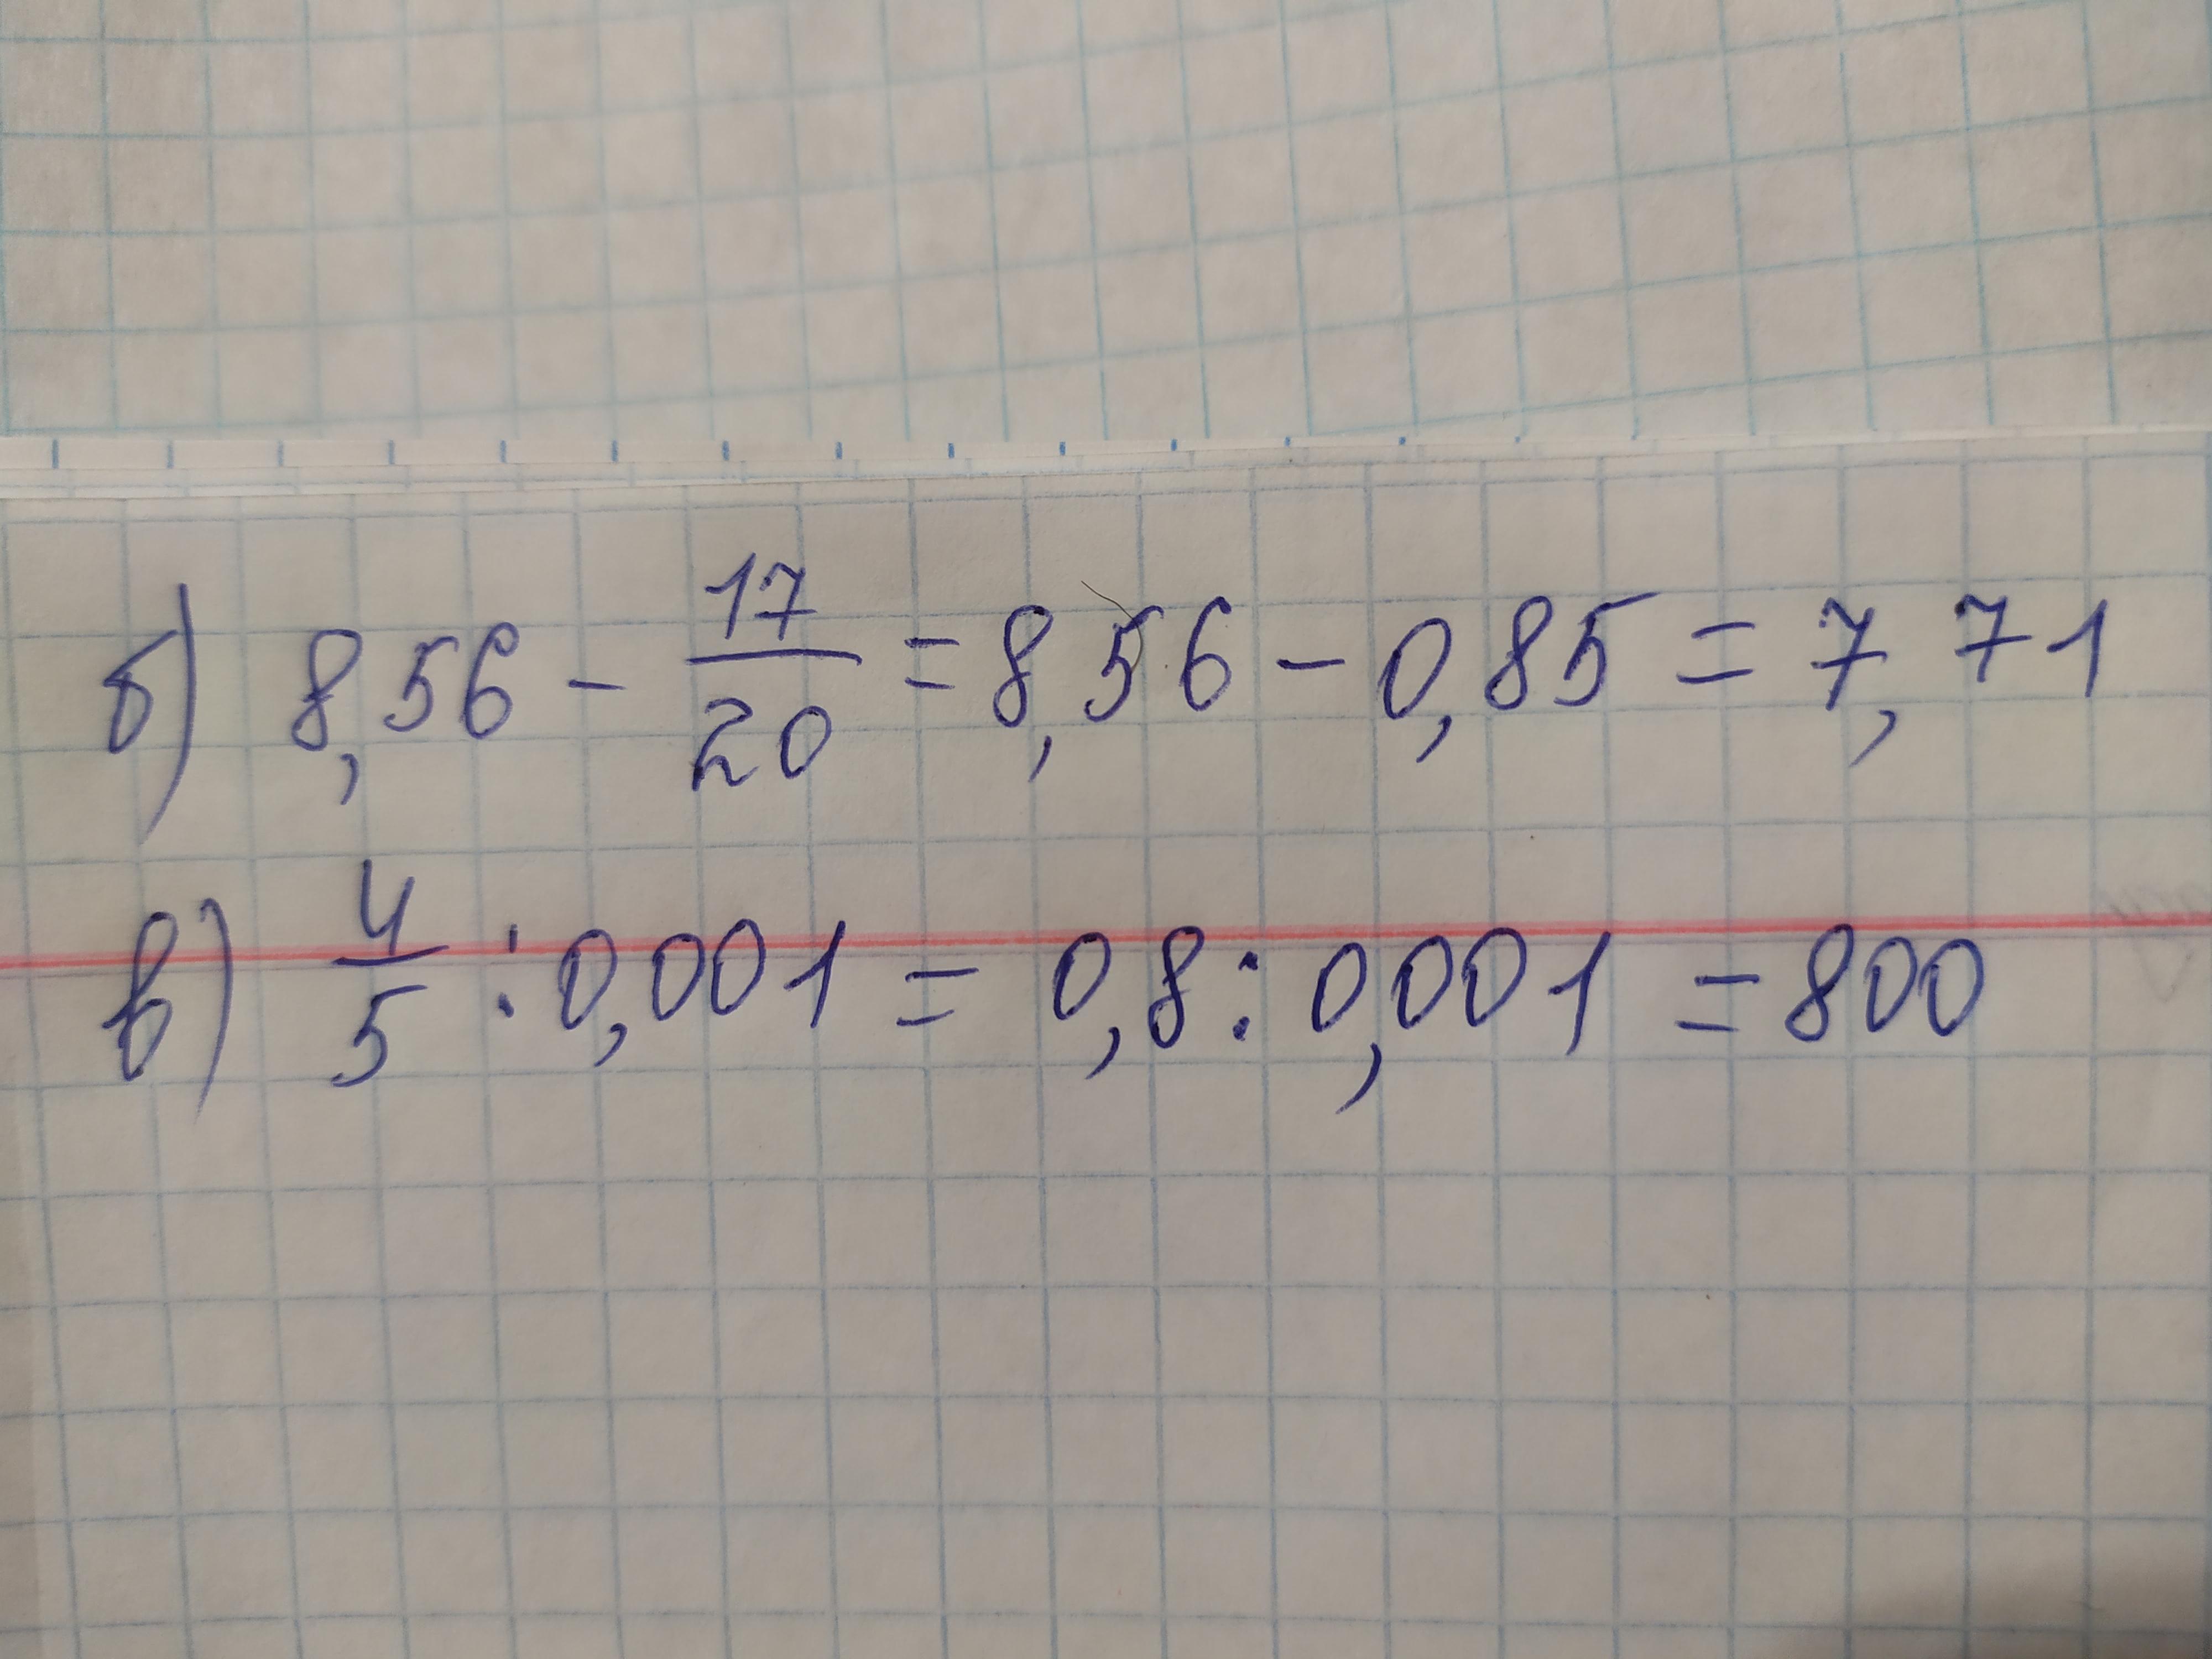 б) 8,56 - 17/20 = 8,56 - 0,85 = 7,71
в) 4/5 : 0,001 = 0,8 : 0,001 = 800